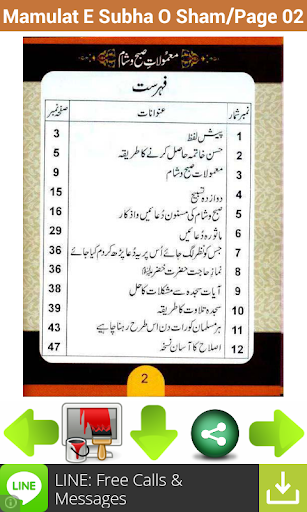 Mamulat E Subha O Sham/Page 02
معمولاتِ صبح و شام
فہرست
نمبر شمار عنوانات صفحہ نمبر
1 پیش لفظ 3
2 حسن خاتمہ حاصل کرنے کا طریقہ 5
3 معمولات صبح و شام 9
4 دوازدہ تسبیح 15
5 صبح و شام کی مسنون دعائیں و اذکار 16
6 ماثورہ دُعائیں 29
7 جس کو نظر لگ جائے اُس پر یہ دُعا پڑھ کر دم کیا جائے 36
8 نمازِ حاجت حضرت خضر 36
9 آیات سجدہ سے مشکلات کا حل 38
10 سجدہ تلاوت کا طریقہ 39
11 ہر مسلمان کو رات دن اس طرح رہنا چاہیے 43
12 اصلاح کا آسان نسخہ 47
2
LINE
LINE: Free Calls &
Messages